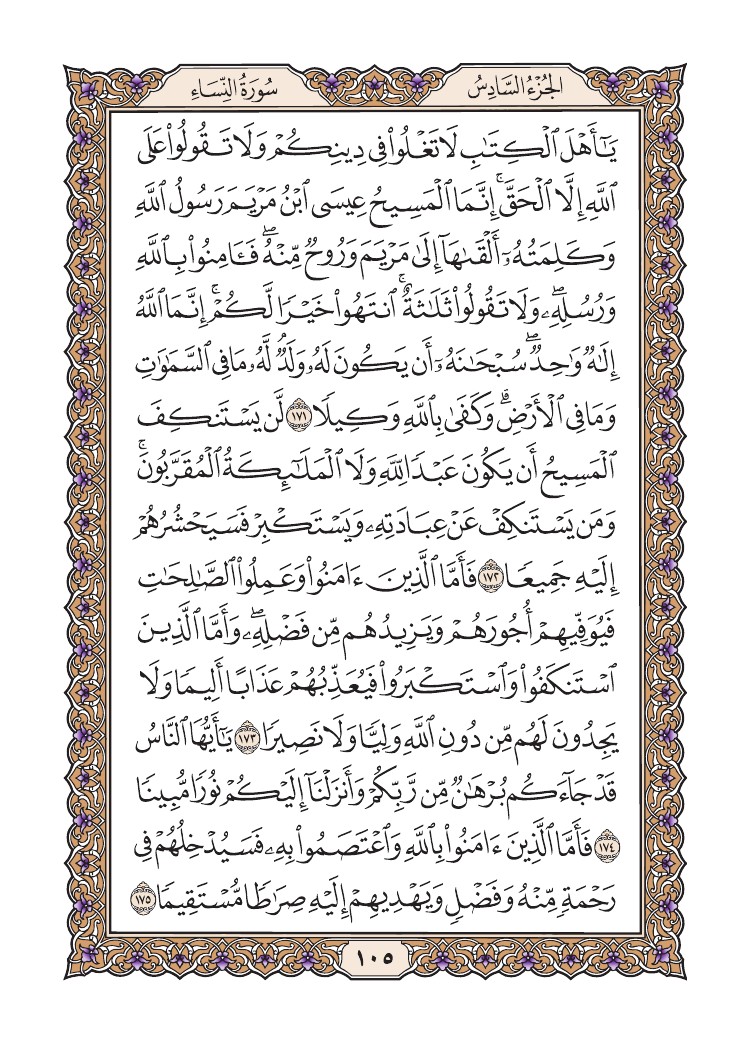 الجزء السادس
سورة النساء
يَٰٓأَهْلَ ٱلْكِتَٰبِ لَا تَغْلُوا۟ فِى دِينِكُمْ وَلَا تَقُولُوا۟ عَلَى
ٱللَّهِ إِلَّا ٱلْحَقَّ ۚ إِنَّمَا ٱلْمَسِيحُ عِيسَى ٱبْنُ مَرْيَمَ رَسُولُ ٱللَّهِ
وَكَلِمَتُهُۥٓ أَلْقَىٰهَآ إِلَىٰ مَرْيَمَ وَرُوحٌ مِّنْهُ ۖ فَـَٔامِنُوا۟ بِٱللَّهِ
وَرُسُلِهِۦ ۖ وَلَا تَقُولُوا۟ ثَلَٰثَةٌ ۚ ٱنتَهُوا۟ خَيْرًا لَّكُمْ ۚ إِنَّمَا ٱللَّهُ
إِلَٰهٌ وَٰحِدٌ ۖ سُبْحَٰنَهُۥٓ أَن يَكُونَ لَهُۥ وَلَدٌ ۘ لَّهُۥ مَا فِى ٱلسَّمَٰوَٰتِ
وَمَا فِى ٱلْأَرْضِ ۗ وَكَفَىٰ بِٱللَّهِ وَكِيلًا ١٧١ لَّن يَسْتَنكِفَ
ٱلْمَسِيحُ أَن يَكُونَ عَبْدًا لِّلَّهِ وَلَا ٱلْمَلَٰٓئِكَةُ ٱلْمُقَرَّبُونَ ۚ
وَمَن يَسْتَنكِفْ عَنْ عِبَادَتِهِۦ وَيَسْتَكْبِرْ فَسَيَحْشُرُهُمْ
إِلَيْهِ جَمِيعًا ١٧٢ فَأَمَّا ٱلَّذِينَ ءَامَنُوا۟ وَعَمِلُوا۟ ٱلصَّٰلِحَٰتِ
فَيُوَفِّيهِمْ أُجُورَهُمْ وَيَزِيدُهُم مِّن فَضْلِهِۦ ۖ وَأَمَّا ٱلَّذِينَ
ٱسْتَنكَفُوا۟ وَٱسْتَكْبَرُوا۟ فَيُعَذِّبُهُمْ عَذَابًا أَلِيمًا وَلَا
يَجِدُونَ لَهُم مِّن دُونِ ٱللَّهِ وَلِيًّا وَلَا نَصِيرًا ١٧٣ يَٰٓأَيُّهَا ٱلنَّاسُ
قَدْ جَآءَكُم بُرْهَٰنٌ مِّن رَّبِّكُمْ وَأَنزَلْنَآ إِلَيْكُمْ نُورًا مُّبِينًا
١٧٤ فَأَمَّا ٱلَّذِينَ ءَامَنُوا۟ بِٱللَّهِ وَٱعْتَصَمُوا۟ بِهِۦ فَسَيُدْخِلُهُمْ فِى
رَحْمَةٍ مِّنْهُ وَفَضْلٍ وَيَهْدِيهِمْ إِلَيْهِ صِرَٰطًا مُّسْتَقِيمًا ١٧٥
١٠٥